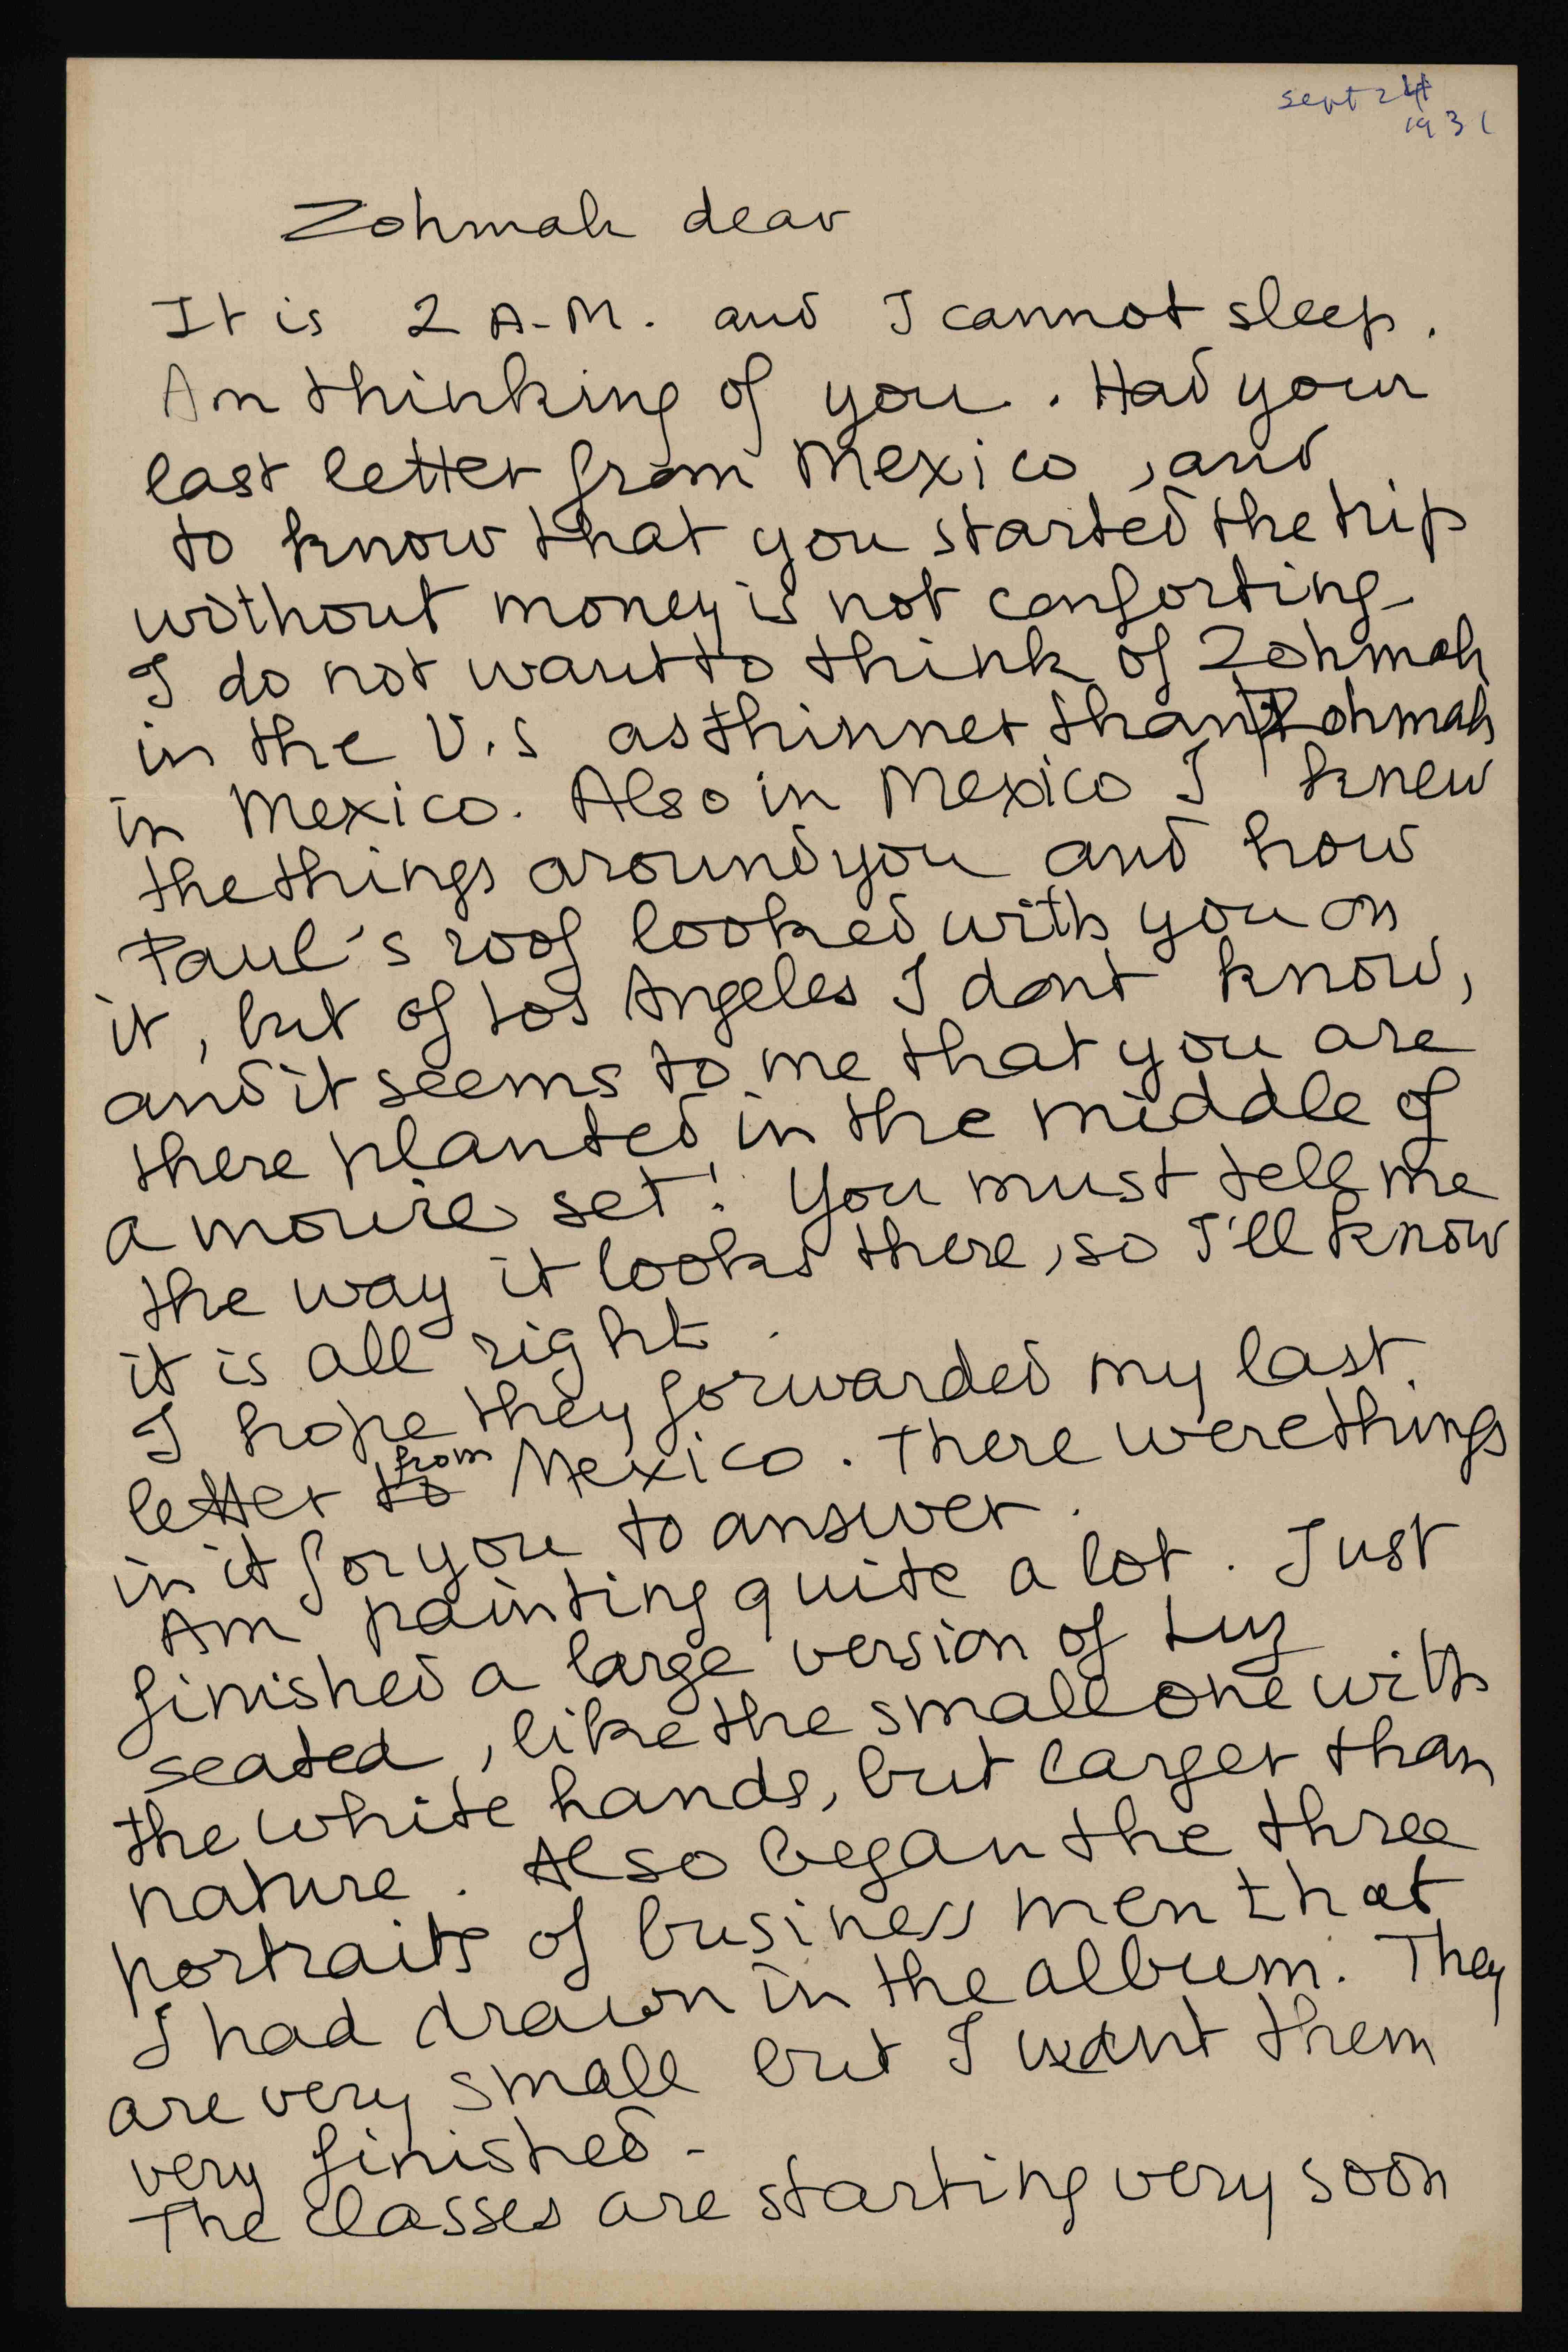 Sept 24
1931
Zohmah dear
It is 2 A-M. and I cannot sleep.
Am thinking of you. Had your
last letter from Mexico, and
to know that you started the trip
without money is not conforting.
I do not want to think of Zohmah
in the U.S as thinner than Zohmah
in Mexico. Also in Mexico I knew
the things around you and how
Paul's roof looked with you on
it, but of Los Angeles I dont know,
and it seems to me that you are
there planted in the middle of
a movie set! You must tell me
the way it looks there, so I'll know
it is all right.
I hope they forwarded my last
letter to from Mexico. There were things
in it for you to answer.
Am painting quite a lot. Just
finished a large version of Luz
seated, like the small one with
the white hands, but larger than
nature. Also began the three
portraits of business men that
I had drawn in the album. They
are very small but I want them
very finished-
The classes are starting very soon